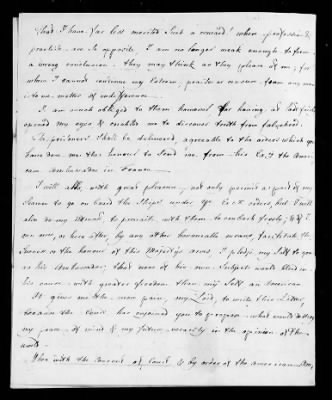 that I have far less merited such a reward! when profession &
practice are so opposite, I am no longer weak enough to form
a wrong conclusion. they may think as they please of me; for
where I cannot continue my Esteem, praise or censure from any man
is to me matter of indifference.
I am much obliged to them however for having at last fairly
opened my eyes & enabled me to discover truth from falsehood.
The prisoners shall be delivered, agreeable to the orders which you
have done me the honour to send me from his Exy the Ame-
rican Ambassador in France.
I will also, with great pleasure, not only permit a part of my
Seamen to go on board the Ships under yr Excys orders but I will
also do my utmost to prevail with them to embark freely; & if I
can now, or hereafter, by any other honourable means, facilitate the
Success or the honour of his Majesty's arms, I pledge my Self to you
as his Ambassador, that none of his own Subjects would bleed in
his cause with greater freedom than my Self an American
It gives me the more pain, my Lord, to write this Letter,
because the Court has enjoined you to prepare what would destroy
my peace of mind & my future veracity in the opinion of the
world.
When with the consent of Court & by order of the american Am,